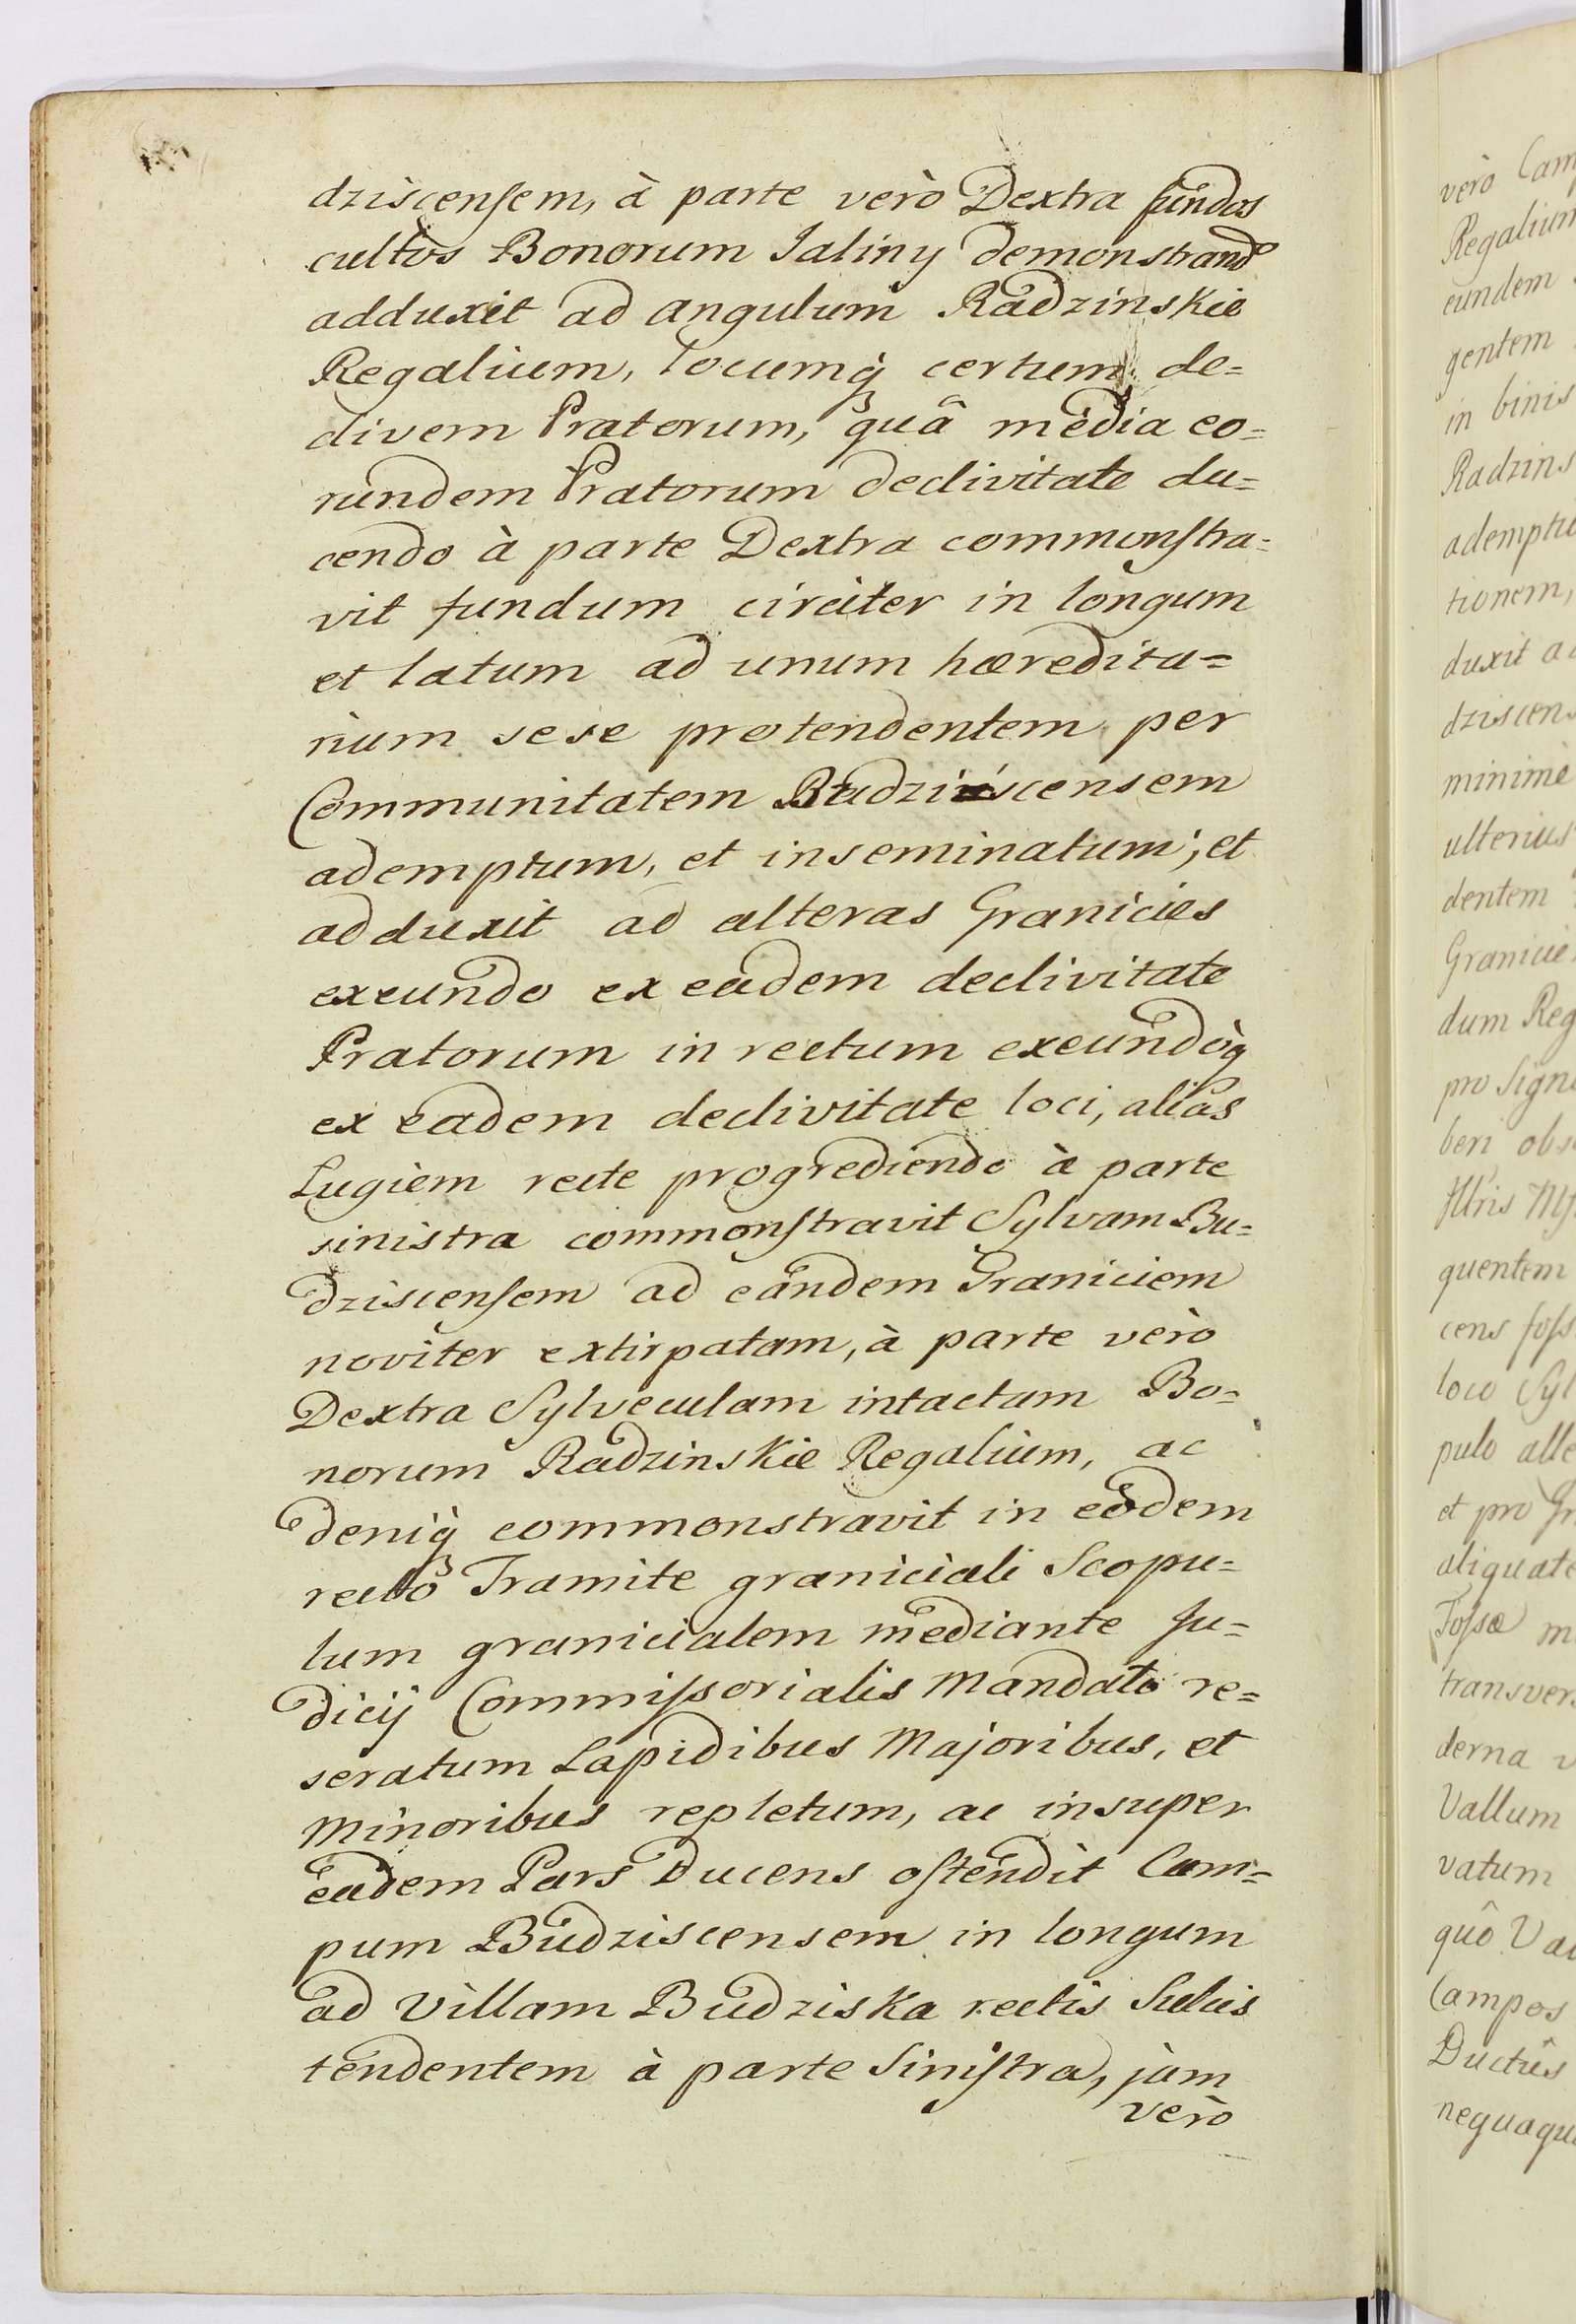 dziscensem, à parte verò Dextra fundos
cultos Bonorum Jaliny demonstrandô
adduxit ad angulum Radzinskie
Regalium, locumq̀ certum de=
clivem Pratorum, quâ media eo=
rundem Pratorum declivitate du=
cendo à parte Dextra commonstra=
vit fundum circiter in longum
et latum ad unum hæredita=
rium sese protendentem per
Communitatem Budziscensem
ademptum, et inseminatum; et
adduxit ad alteras Granicies
exeundo ex eadem declivitate
Pratorum in rectum exeundoq̀
ex eadem declivitate loci, alias
Lugiem recte progrediendo à parte
sinistra commonstravit Sylvam Bu=
dziscensem ad eandem Graniciem
noviter extirpatam, à parte vero
Dextra Sylveculam intactam Bo=
norum Radzinskie Regalium, ac
deniq̀ commonstravit in eôdem
rectô Tramite graniciali Scopu=
lum granicialem mediante Ju=
dicij Commissorialis Mandato re=
seratum Lapidibus Majoribus, et
Minoribus repletum, ac insuper
eadem Pars Ducens ostendit Cam=
pum Budziscensem in longum
ad Villam Budziska rectis Sulcis
tendentem à parte Sinistra, jam
verò
verò
Regalium
eundem
gentem
in binis
dziscens
minimè
ulterius
dentem
dum Reg
quentem
transver
derna
Vallum
vatum
Campos
Ductûs